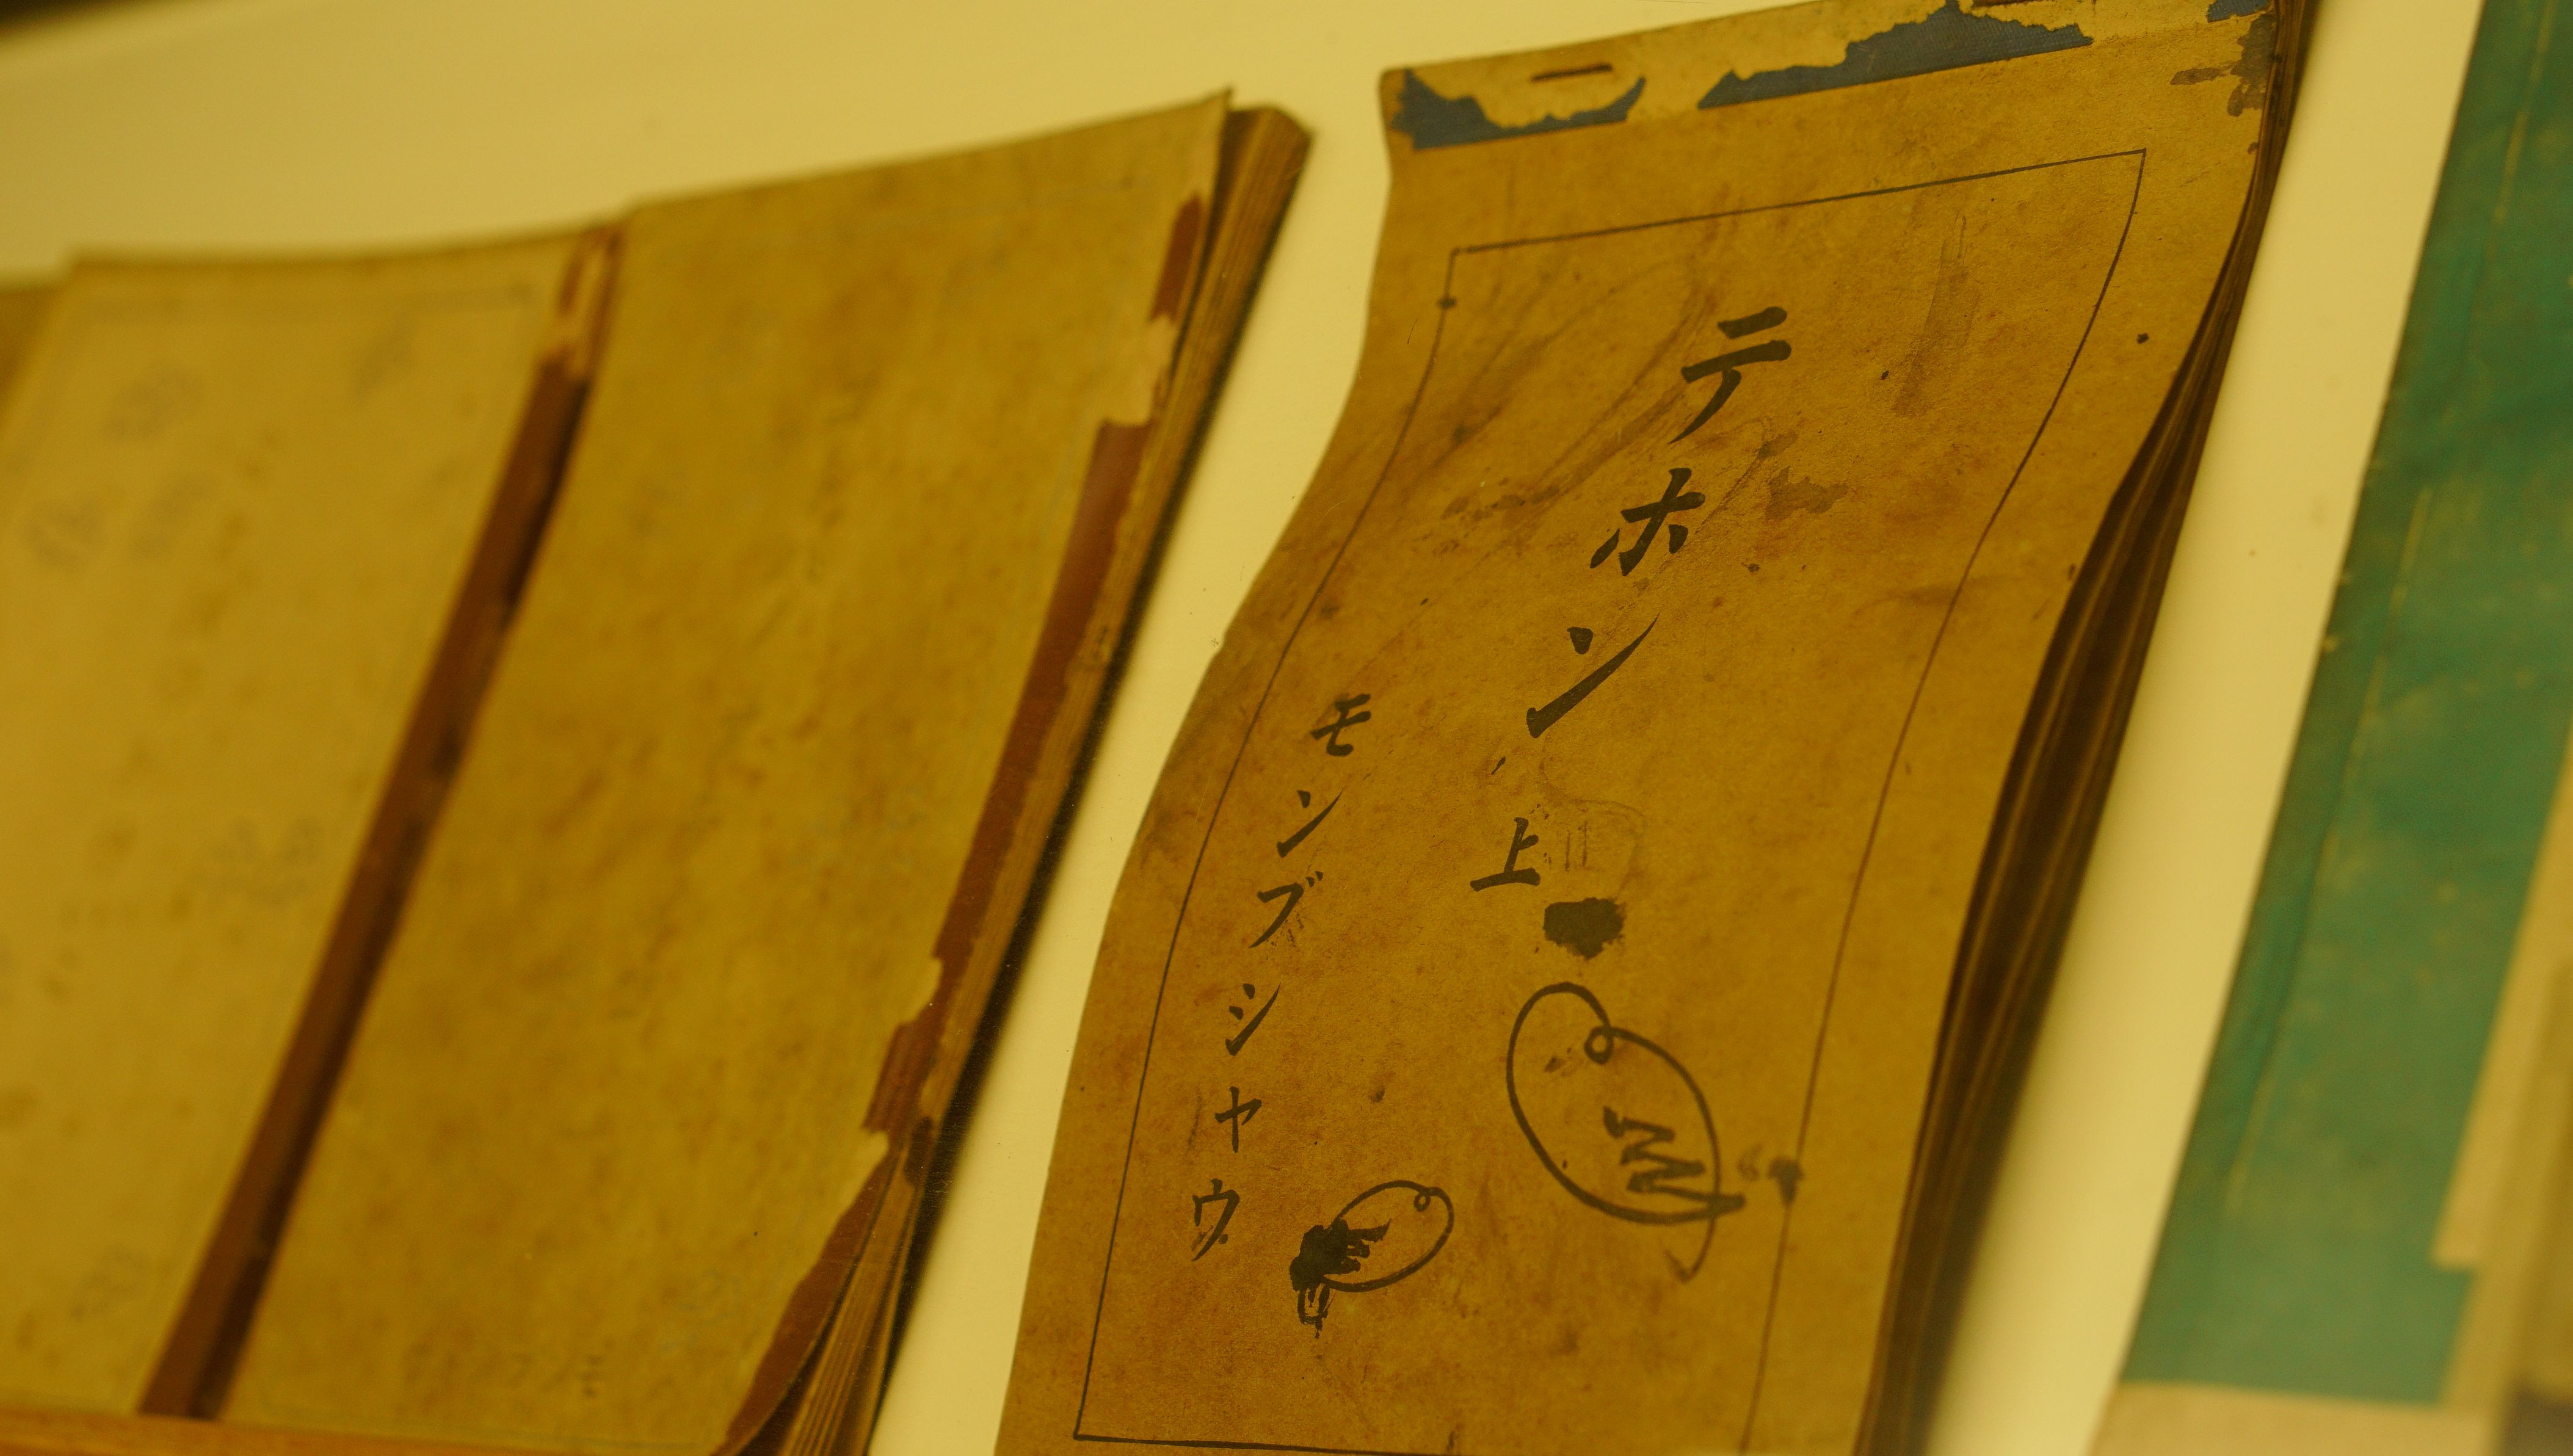 テホン 上
モンブシヤウ